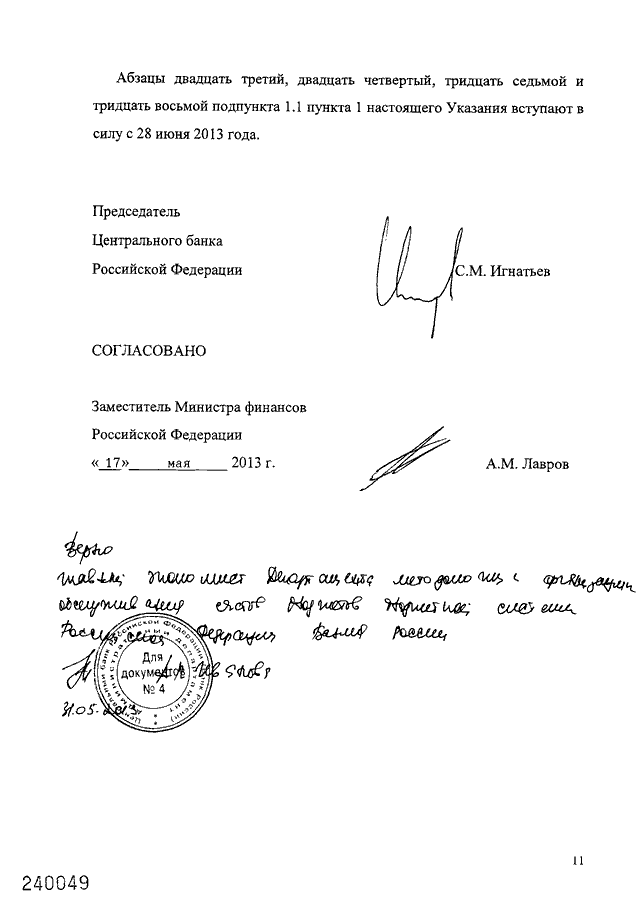 Абзацы двадцать третий, двадцать четвертый, тридцать седьмой и
тридцать восьмой подпункта 1.1 пункта 1 настоящего Указания вступают в
силу с 28 июня 2013 года.
Председатель
Центрального банка
Российской Федерации
С.М. Игнатьев
СОГЛАСОВАНО
Заместитель Министра финансов
Российской Федерации
« 17» мая 2013 г.
А.М. Лавров
Верно
экономист Департамента методологии и организации
обслуживания счетов системы
Российской Федерации Банка России
Центральный банк Российской Федерации (Банк России)
Административный департамент
Для
документов
№ 4
31.05.2013
11
240049